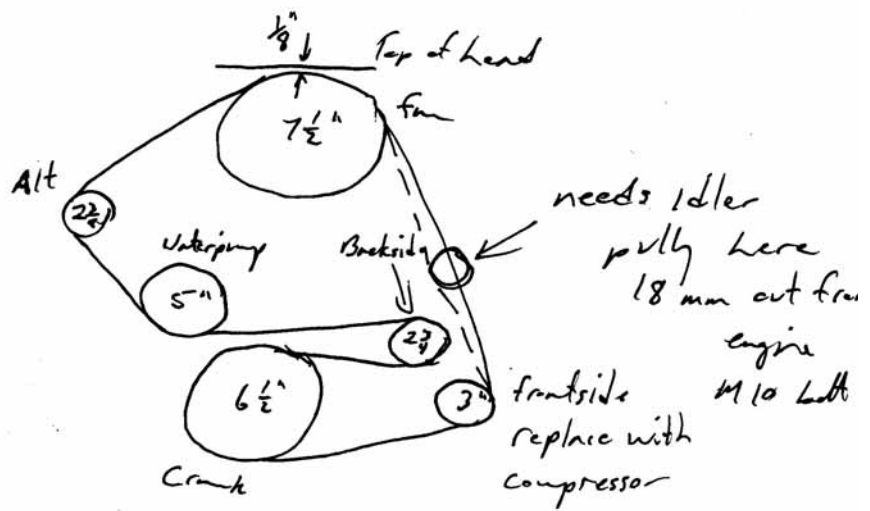 1/8"
Top of head
7 1/2"
fan
Alt
2 3/4
Waterpump
5"
Backside
2 3/4
needs Idler
pully here
18 mm out from
engine
M10 bolt
6 1/2"
Crank
3"
frontside
replace with
compressor